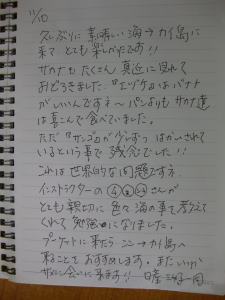 11/10
久しぶりに素晴しい海→カイ島に
来て とても楽しかたです!!
サカナもたくさん真近に見れて
おどろきました。『エヅケ』はバナナ
がいいんですネ〜パンよりもサカナ達
は喜こんで食べていました。
ただ『サンゴ』が少しずつ はがしされて
いるという事で残念でした!!
これは世界的な問題ですネ。
インストラクターの さんが
とても親切に色々海の事を教えて
くれて勉強になりました。
プーケットに来たら ココ→カイ島へ
来ることをおすすめします。またいつか
サカナに会いに来ます!! 日産 一同